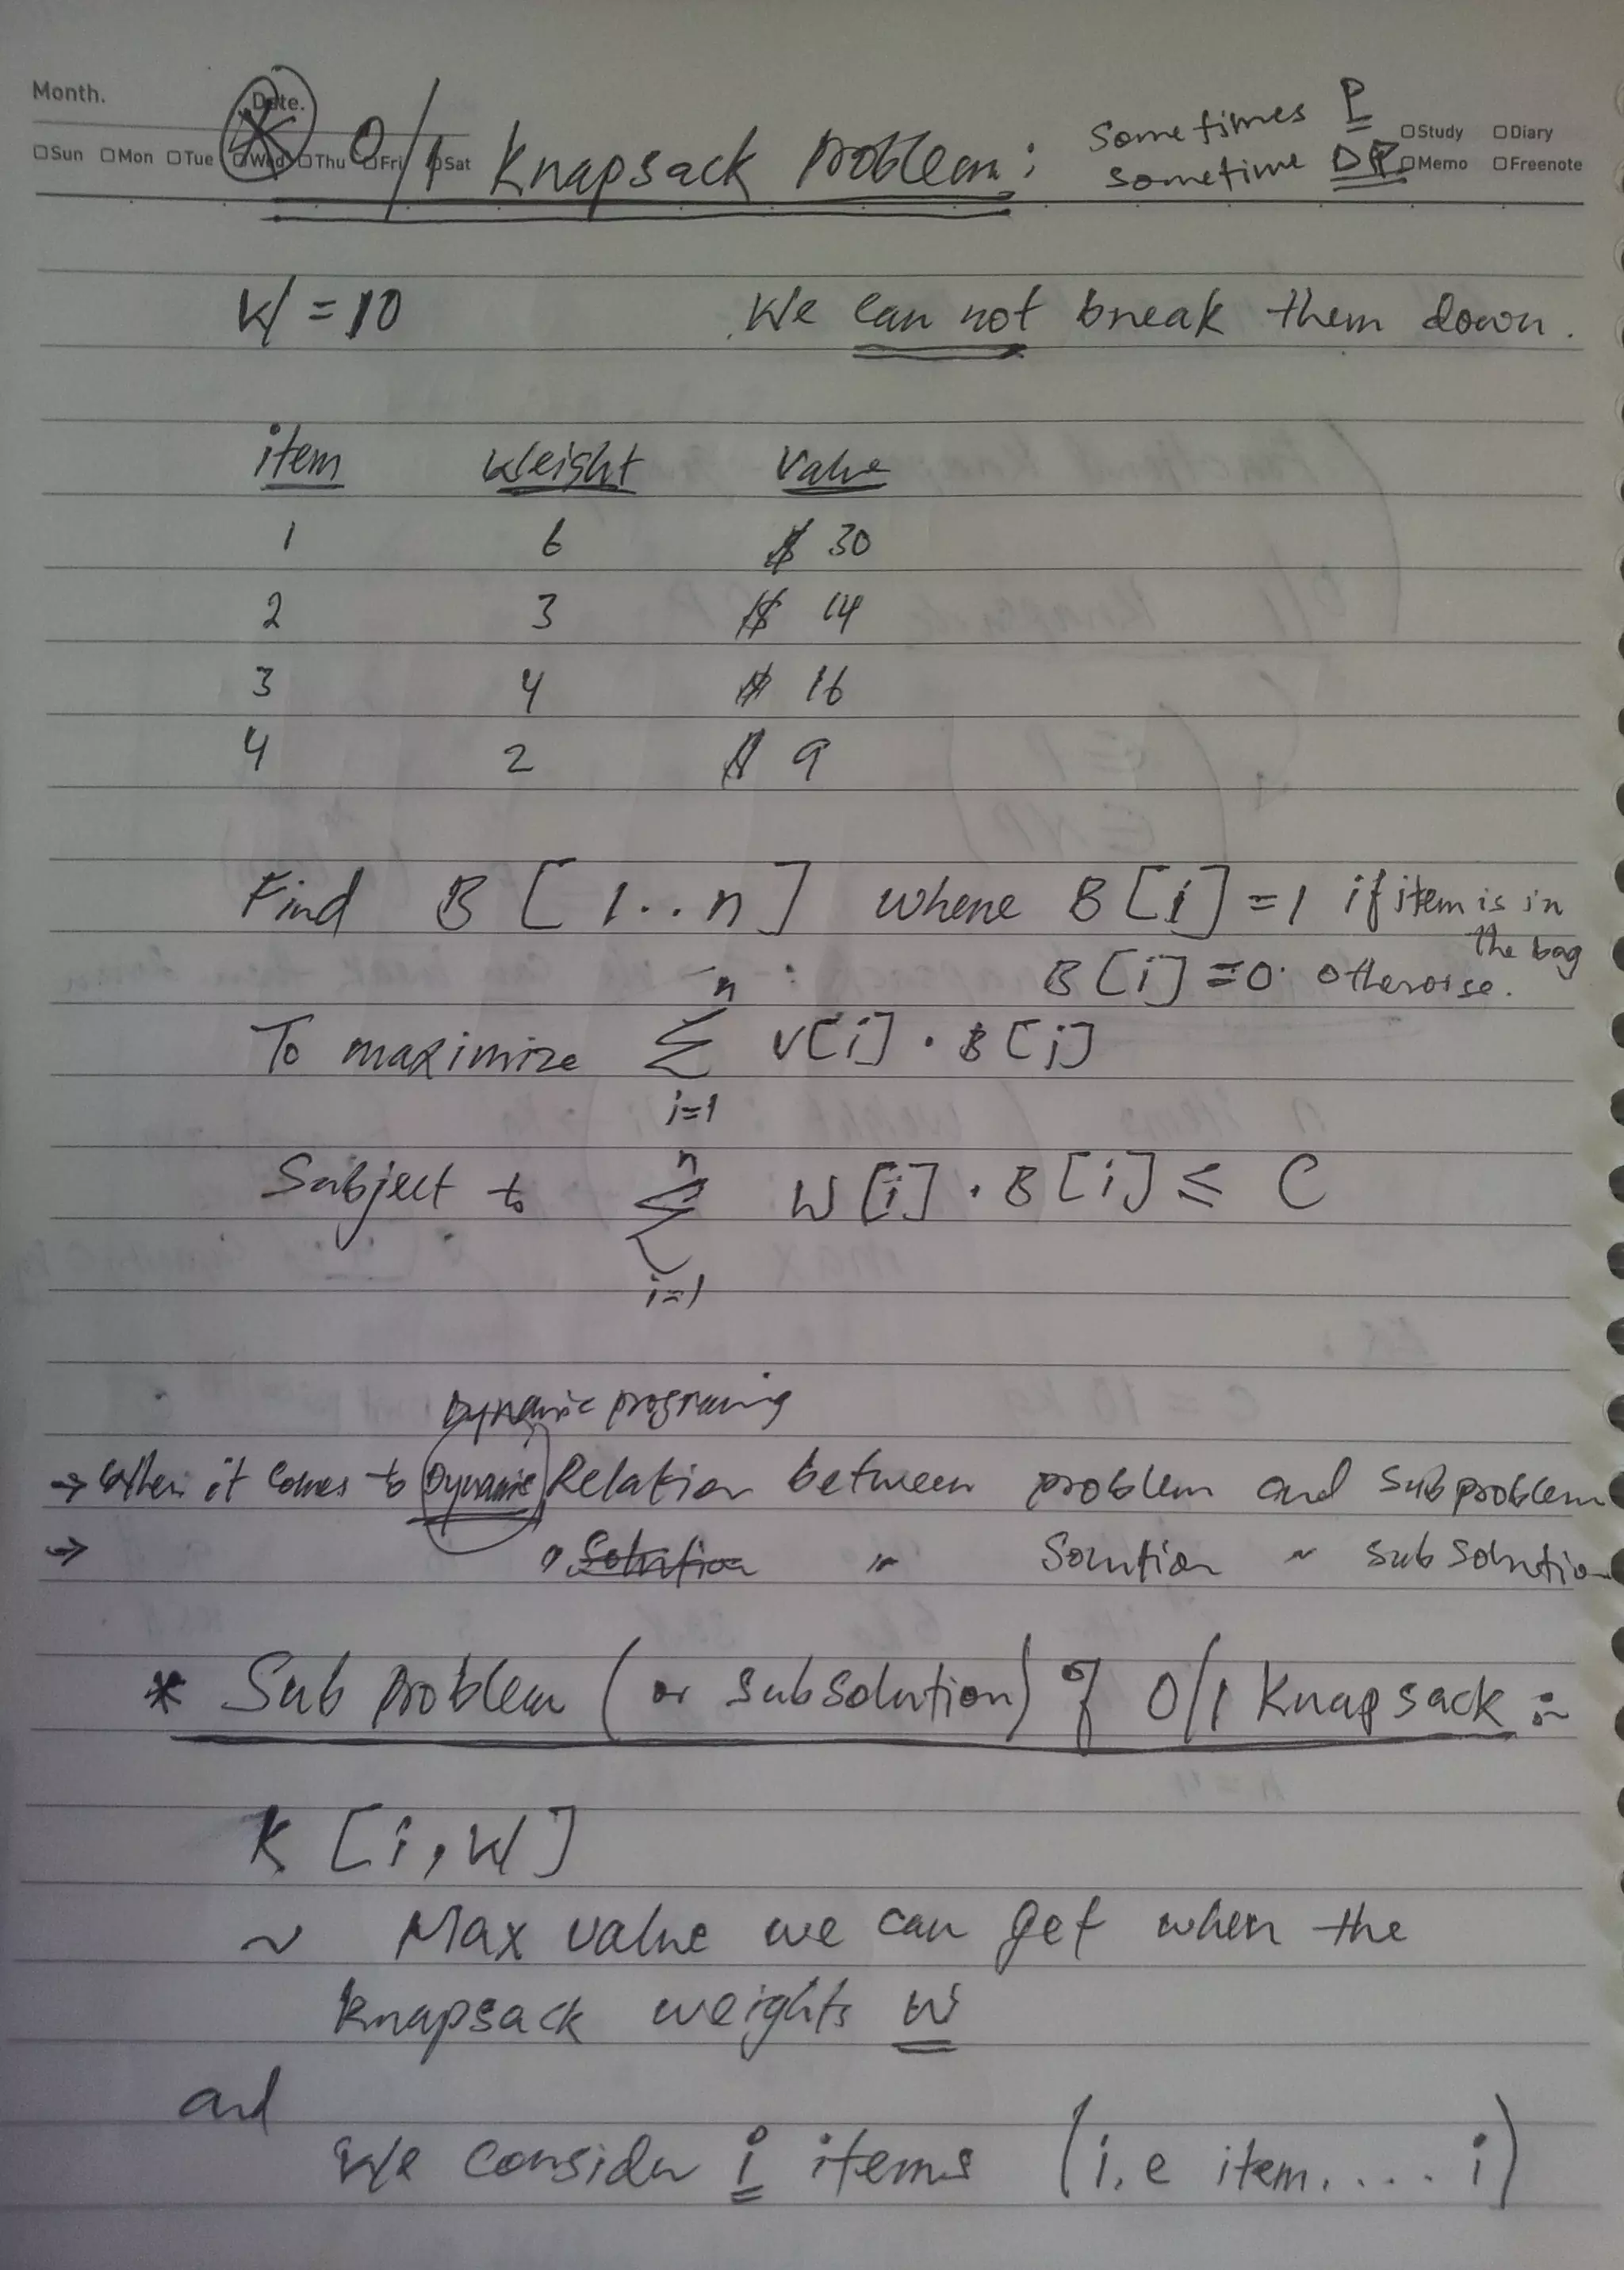 Month. Date.
□Sun □Mon □Tue □Wed □Thu □Fri □Sat
□Study □Diary
□Memo □Freenote
0/1 Knapsack Problem:
Sometimes P
sometime DP
W = 10 We can not break them down.
item Weight Value
1 6 $ 30
2 3 $ 14
3 4 $ 16
4 2 $ 9
Find B [ 1..n ] where B[i]=1 if item is in the bag
B[i]=0 otherwise.
To maximize n ∑ i=1 V[i] . B[i]
Subject to n ∑ i=1 W[i] . B[i] ≤ C
Dynamic programing
→ When it comes to Dynamic Relation between problem and subproblem
→ " Solution " Solution ~ sub solution
* Sub problem (or subsolution) of 0/1 Knapsack :~
K [i, W]
~ Max value we can get when the
knapsack weights W
and
We consider i items (i.e item..... i)